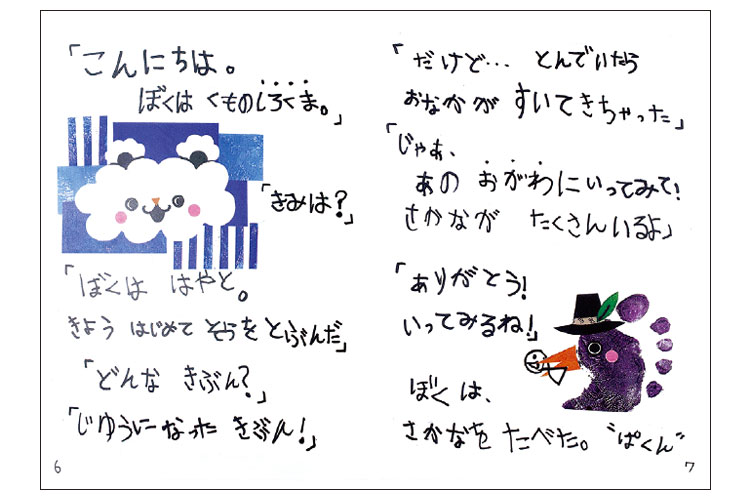 「こんにちは。
ぼくは くものしろくま。」
「きみは?」
「ぼくは はやと。
きょう はじめて そらを とぶんだ」
「どんな きぶん?」
「じゆうになった きぶん!」
6
「だけど… とんでいたら
おなかが すいてきちゃった」
「じゃあ、
あの おがわにいってみて!
さかなが たくさんいるよ」
「ありがとう!
いってみるね!」
ぼくは、
さかなを たべた。"ぱくん"
7